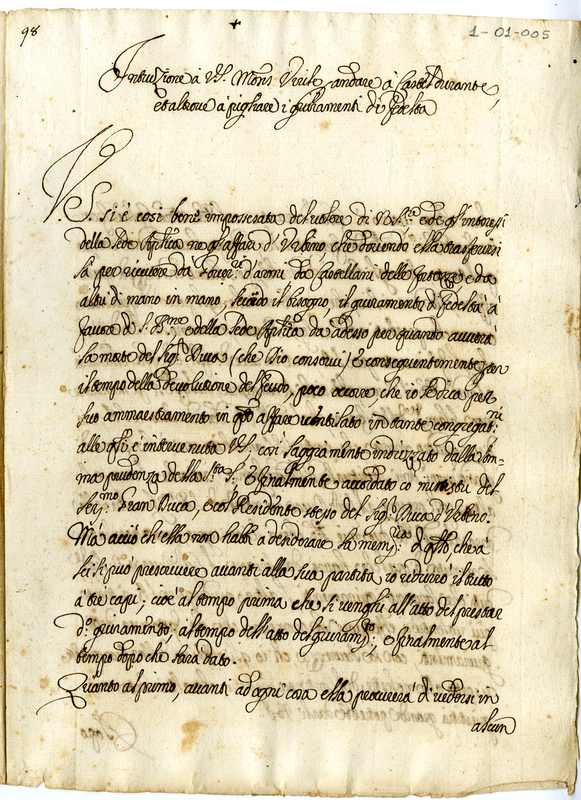 98
1-01-005
Instruzione à V.S. Mons.r Verile andare à Castel durante,
et altrove à pigliare i giuramenti di fedeltà
V.S. si è così bene impossessata del volere di N. S.re e de gl'interessi
della Sede Ap.lica ne gl'affari d'Urbino che dovendo ella trasferirsi
là per ricevere da Gover.ri d'armi da Castellani delle fortezze e da
altri di mano in mano, secondo il bisogno, il giuramento di fedeltà à
favore di S. B.ne e della Sede Ap.lica da adesso per quando avverrà
la morte del Sig.r Duca (che Dio conservi) e conseguentemente per
il tempo della Devoluzione del feudo, poco occorre che io le dica per
suo ammaestramento in q.to affare ventilato in tante congregat.ni
alle q.li è intervenuta V.S. così saggiamente indrizzato dalla som-
ma prudenza della S.tà S. e finalmente accordato co ministri del
Ser.mo Gran Duca, e col Residente stesso del Sig.r Duca d'Urbino.
Mà acciò ch'ella non habbi a desiderare la mem.ria di q.llo che à
lei si può prescrivere avanti alla sua partita, io ridurrò il tutto
à tre capi; cioè al tempo prima che si venghi all'atto del prestar
d.o giuramento, al tempo dell'atto del giuram.to; e finalmente al
tempo dopo che sarà dato.
Quanto al primo, avanti ad ogni cosa ella procurerà di vedersi in
alcun